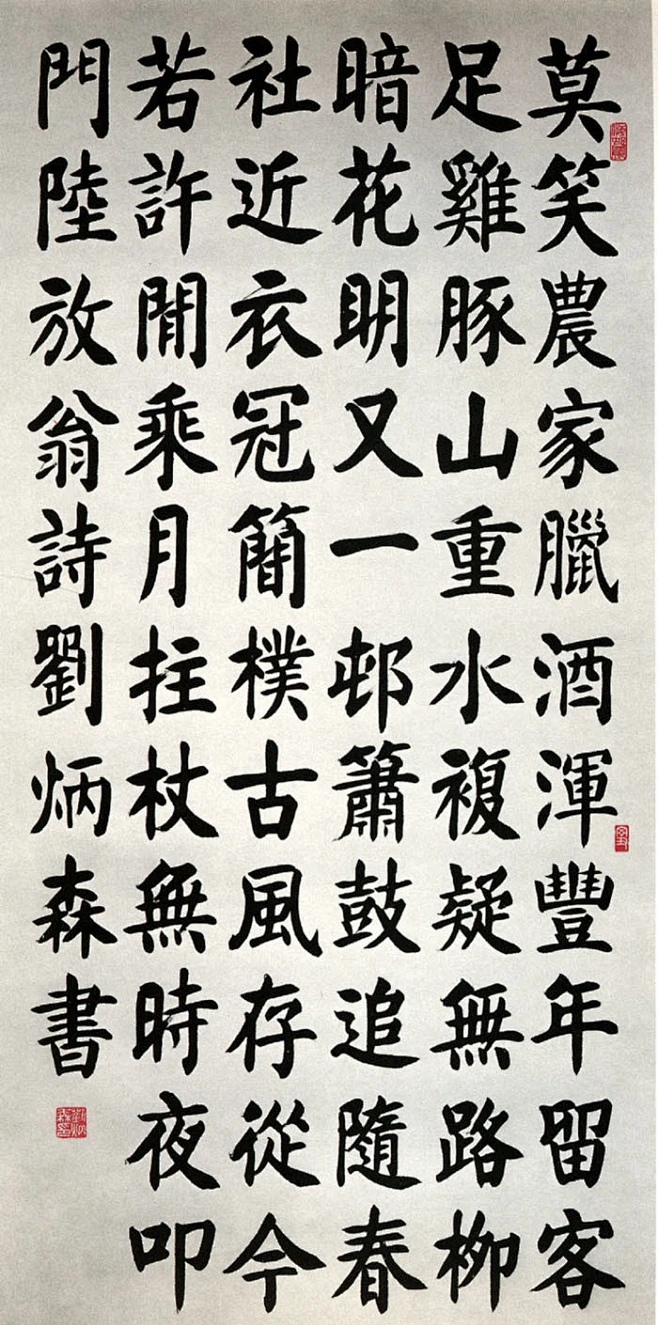 莫笑農家臘酒渾豐年留客
足雞豚山重水複疑無路柳
暗花明又一邨簫鼓追隨春
社近衣冠簡樸古風存從今
若許閒乘月拄杖無時夜叩
門陸放翁詩劉炳森書